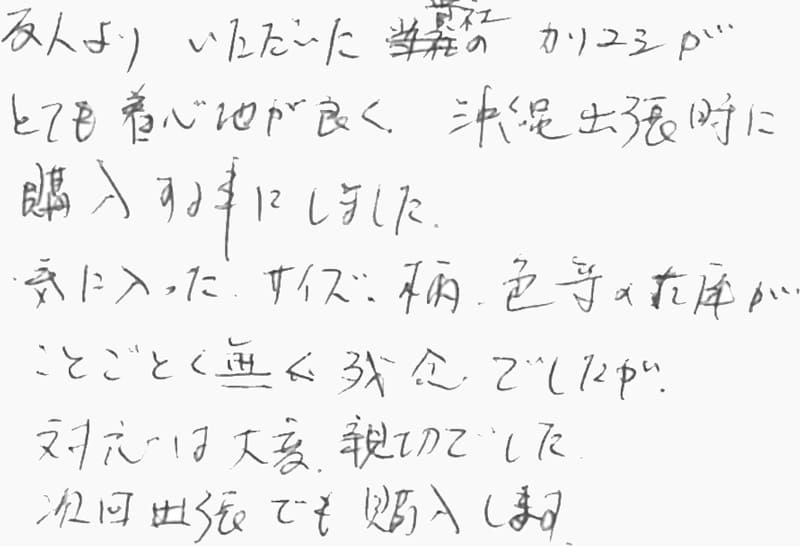 友人より いただいた 貴社の カリユシが
とても着心地が良く、沖縄出張時に
購入する事にしました。
気に入った、サイズ、柄、色等の在庫が
ことごとく無く残念でしたが、
対応は大変、親切でした
次回出張でも購入します。